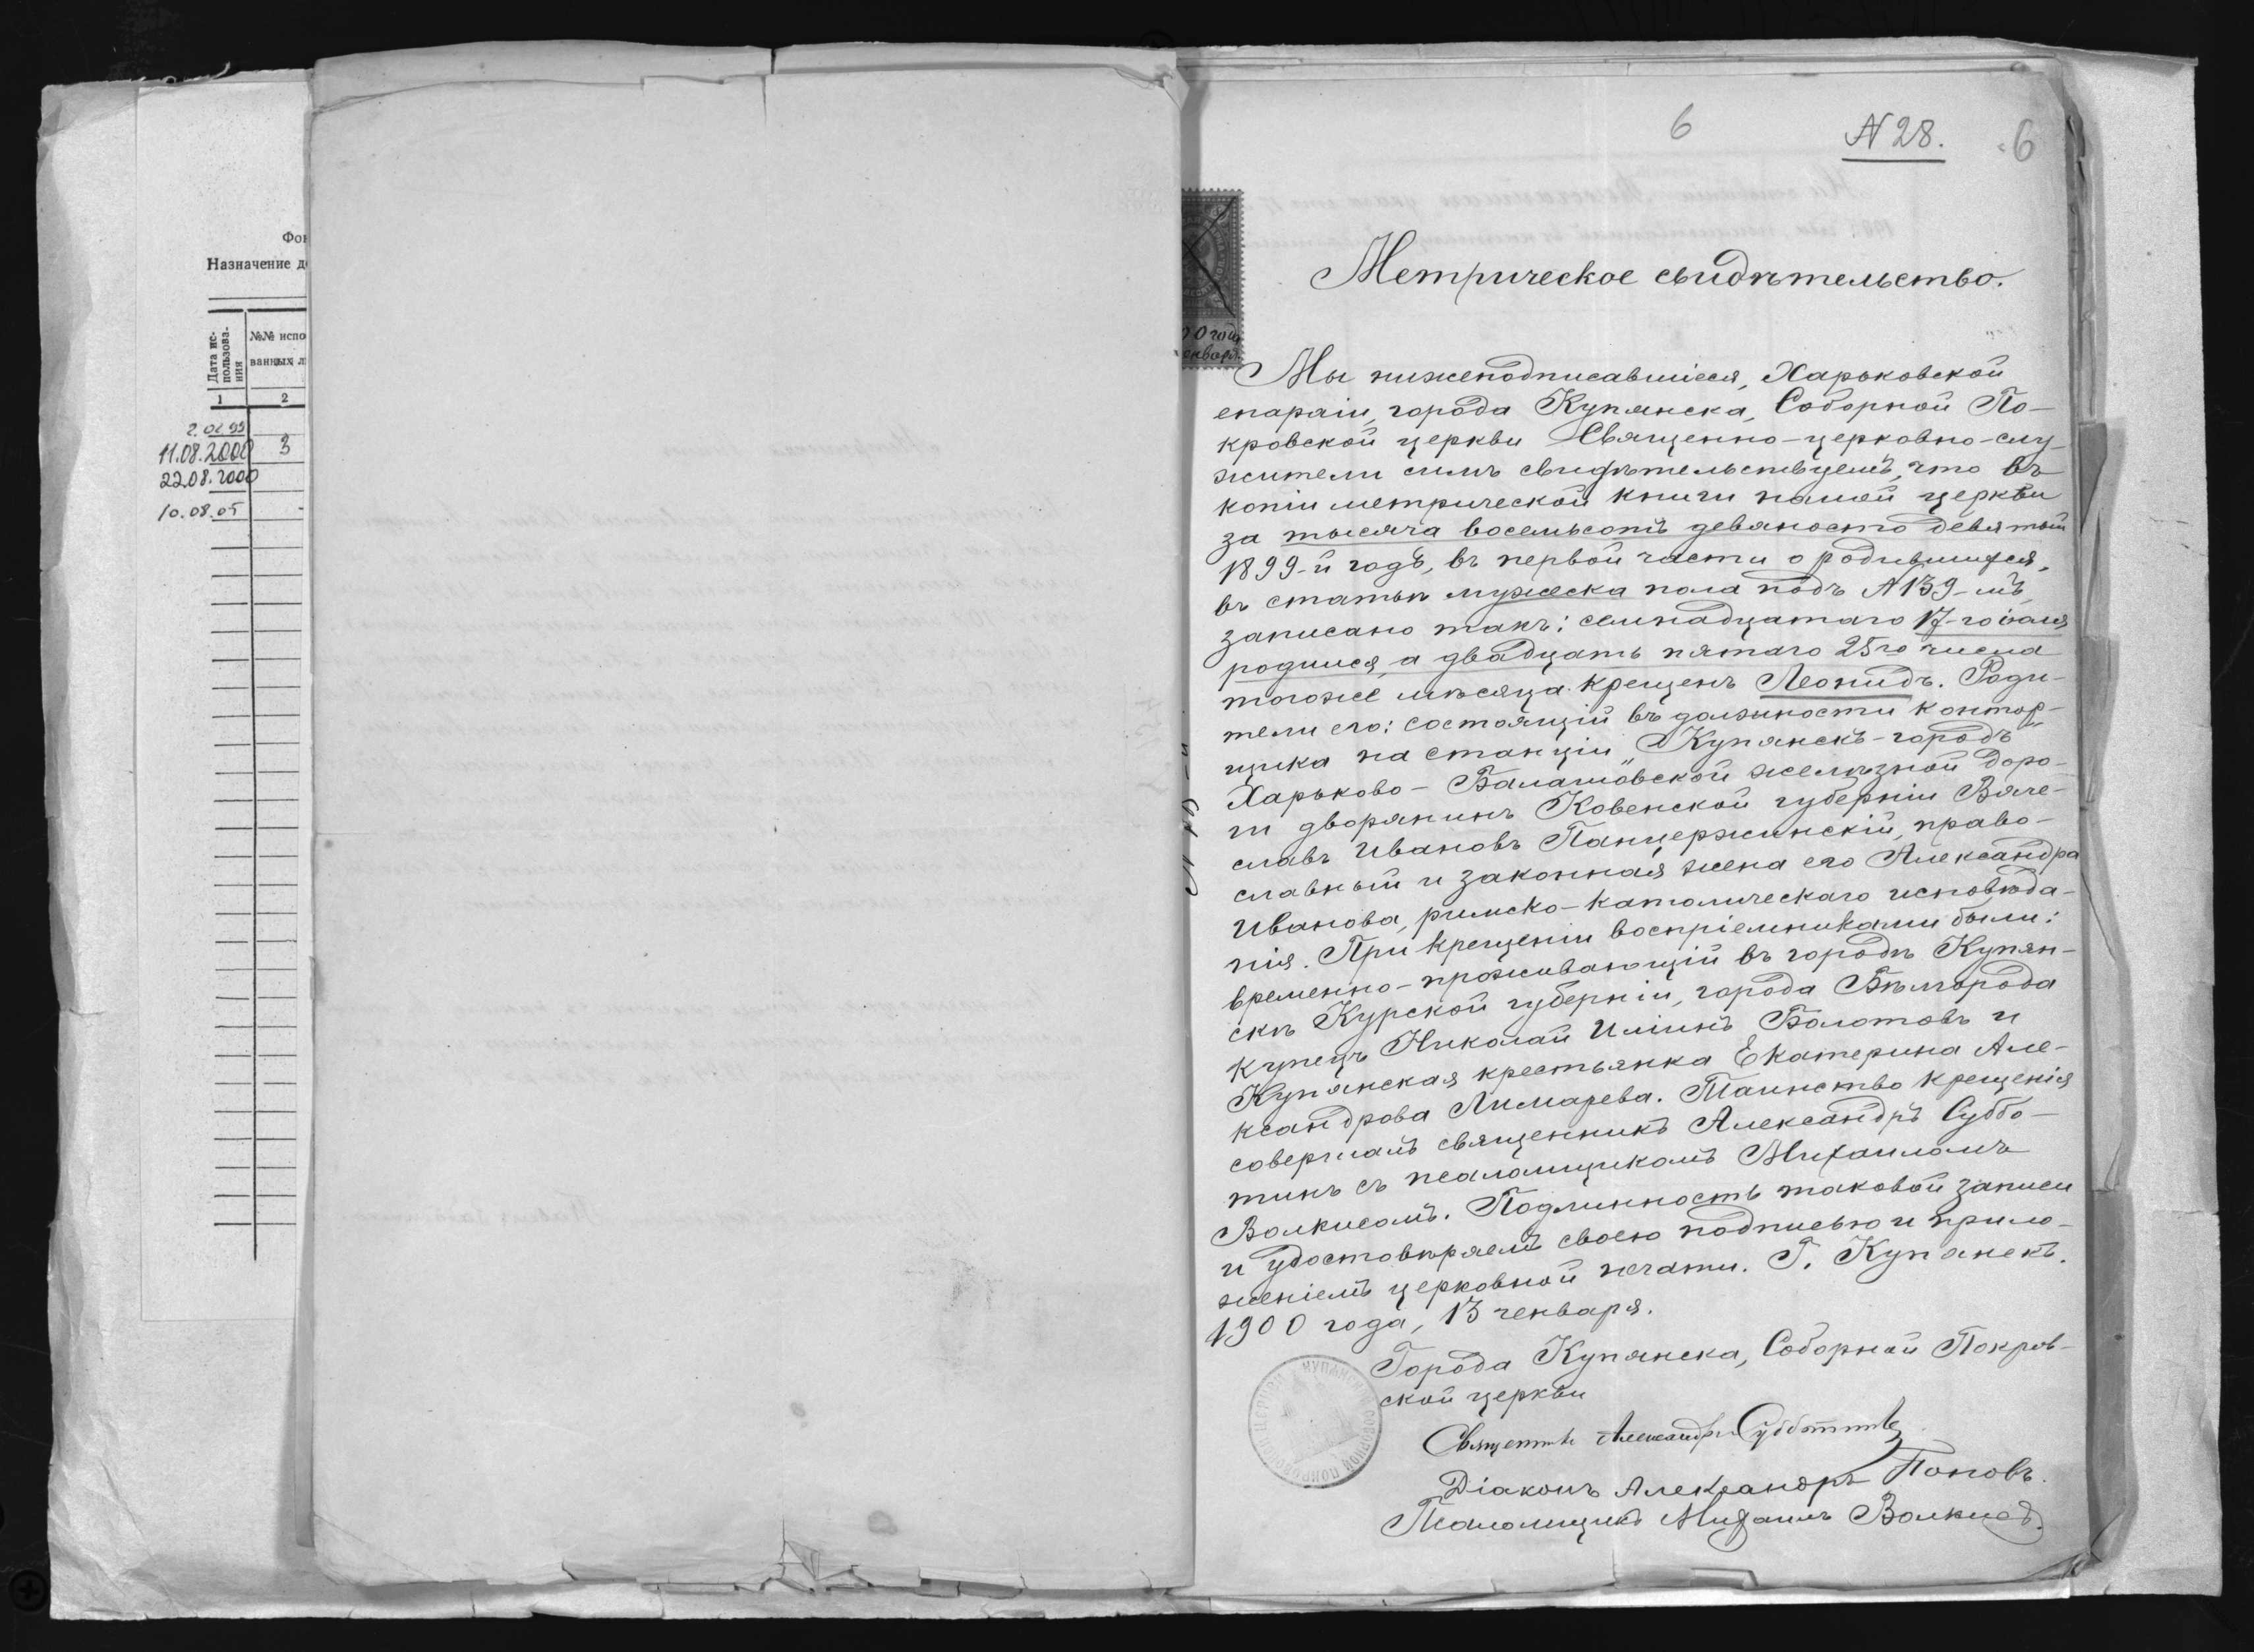 Фон
Назначение де
Дата ис-
пользова-
ния
№№ испо
ванных л
1
2
11.08.2000 3
22.08.2000
10.08.05
6
N 28.
6
Метрическое свидѣтельство.
Мы нижеподписавшіеся, Харьковской
епархіи, города Купянска, Соборной По-
кровской церкви Священно-церковно-слу-
жители симъ свидѣтельствуемъ, что въ
копіи метрической книги нашей церкви
за тысяча восемьсотъ девяносто девятый
1899-й годъ, въ первой части о родившихся,
въ статьѣ мужеска пола подъ N 139-мъ,
записано такъ: семнадцатаго 17-го
родился, а двадцать пятаго 25го числа
тогоже мѣсяца крещенъ Леонидъ. Роди-
тели его: состоящій въ должности контор-
щика на станціи „Купянскъ-городъ"
Харьково-Балашовской желѣзной доро-
ги дворянинъ Ковенской губерніи Вяче-
славъ Ивановъ Панцержинскій, право-
славный и законная жена его Александра
Иванова, римско-католическаго исповѣда-
нія. При крещеніи воспріемниками были:
временно-проживающій въ городѣ Купян-
скѣ Курской губерніи, города Бѣлгорода
купецъ Николай Иліинъ Болотовъ и
Купянская крестьянка Екатерина Але-
ксандрова Лимарева. Таинство крещенія
совершалъ священникъ Александръ Суббо-
тинъ съ псаломщикомъ Михаиломъ
Волкисомъ. Подлинность таковой записи
и удостовѣряемъ своею подписью и прило-
женіемъ церковной печати. Г. Купянскъ.
1900 года, 13 генваря.
Города Купянска, Соборной Покров-
ской церкви
Священникъ Александръ Субботинъ
Діаконъ Александръ Поповъ.
Псаломщикъ Михаилъ Волкисъ.